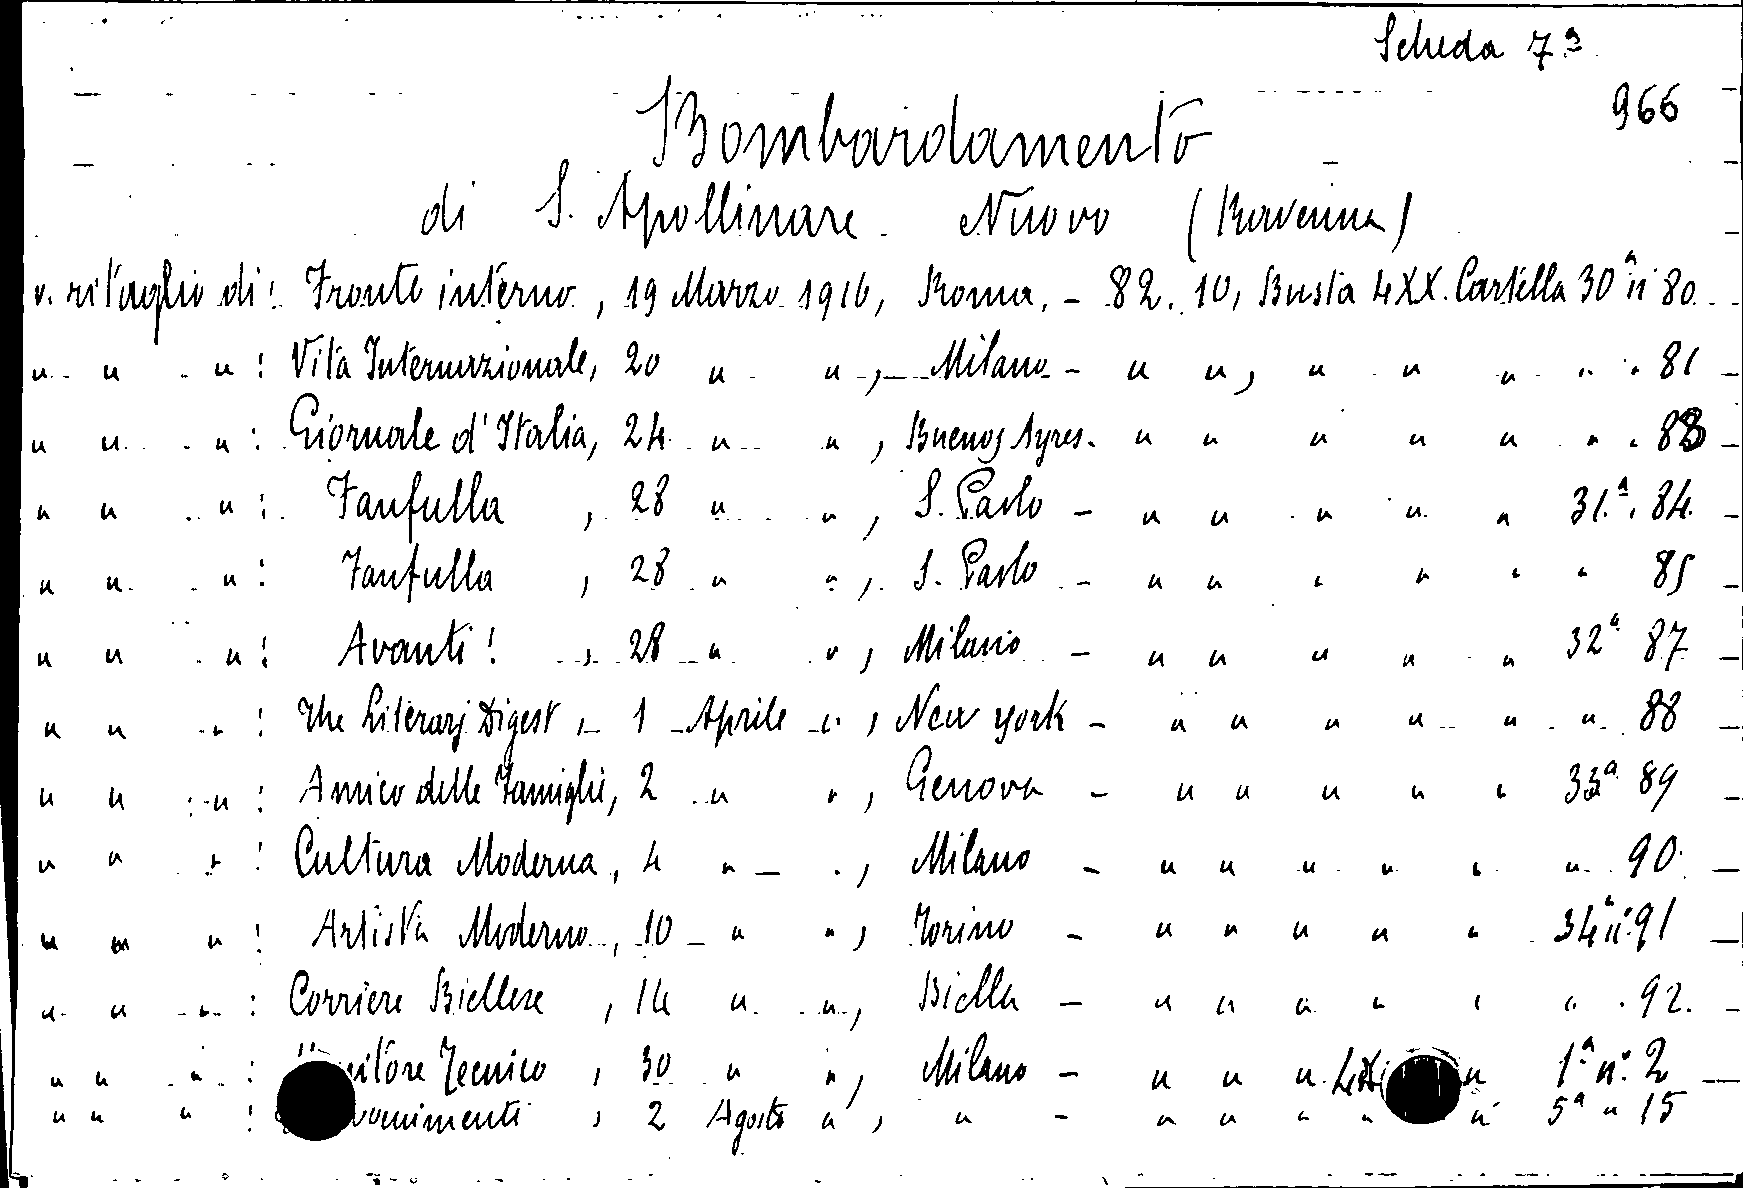 Scheda 7ª
966
Bombardamento
di S. Apollinare Nuovo (Ravenna)
v. ritaglio di: Fronte interno, 19 Marzo 1916, Roma. - 82. 10, Busta 4XX. Cartella 30ª n 80
" " " : Vita Internazionale, 20 " ", Milano - " ", " " " " " 81
" " " : Giornale d'Italia, 24 " ", Buenos Ayres. " " " " " " " 83
" " " : Fanfulla, 28 " ", S. Paolo - " " " " " 31.ª " 84.
" " " : Fanfulla, 28 " ", S. Paolo - " " " " " " 85
" " " : Avanti!, 28 " ", Milano - " " " " " 32ª 87
" " " : The Literarj Digest, 1 Aprile ", New york - " " " " " " 88
" " " : Amico delle Famiglie, 2 " ", Genova - " " " " " 33ª 89
" " " : Cultura Moderna, 4 " ", Milano - " " " " " " 90.
" " " : Artista Moderno, 10 " ", Torino - " " " " " 34ª n. 91
" " " : Corriere Biellese, 14 " ", Biella - " " " " " " " 92.
" " " : nitore Tecnico, 30 " ", Milano - " " " " 1ª n. 2
" " " : vvenimenti, 2 Agosto ", " - " " " " " 5ª " 15